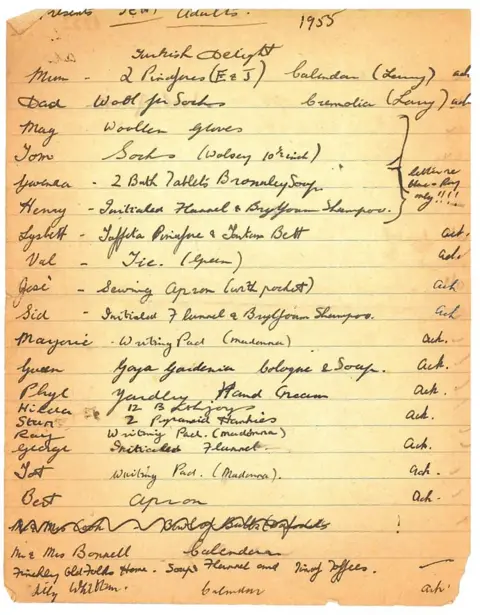 Presents SENT Adults. 1955
Turkish Delight
Mum - 2 Pinafores (E & J) Calendar (Larry) ack
Dad Wool for Socks Cremolia (Larry) ack
May Woollen gloves
Tom Socks (Wolsey 10½ inch)
Gwenda - 2 Bath Tablets Bromley Soap.
letter re
only!!!!
Henry - Initialed Flannel & Brylfoam Shampoo.
Lysbett - Taffeta Pinafore & Tartan Belt ack.
Val - Tie. (Green) ack.
José - Sewing Apron (with pocket) ack
Sid - Initialed Flannel & Brylfoam Shampoo. ack
Marjorie - Writing Pad (madonna) ack.
Gwen Goya Gardenia Cologne & Soap. Ack.
Phyl Yardley Hand Cream Ack.
Hilda 12 B
Stan 2 Pyramid Hankies Ack.
Ray Writing Pad. (madonna)
George Initialed Flannel. Ack.
Tot Writing Pad. (Madonna). Ack.
Bert Apron Ack.
!
Mr & Mrs Bonnell Calendar
Finchley Old Folks Home. Soap Flannel and Tin of Toffees.
Lily Calendar ack